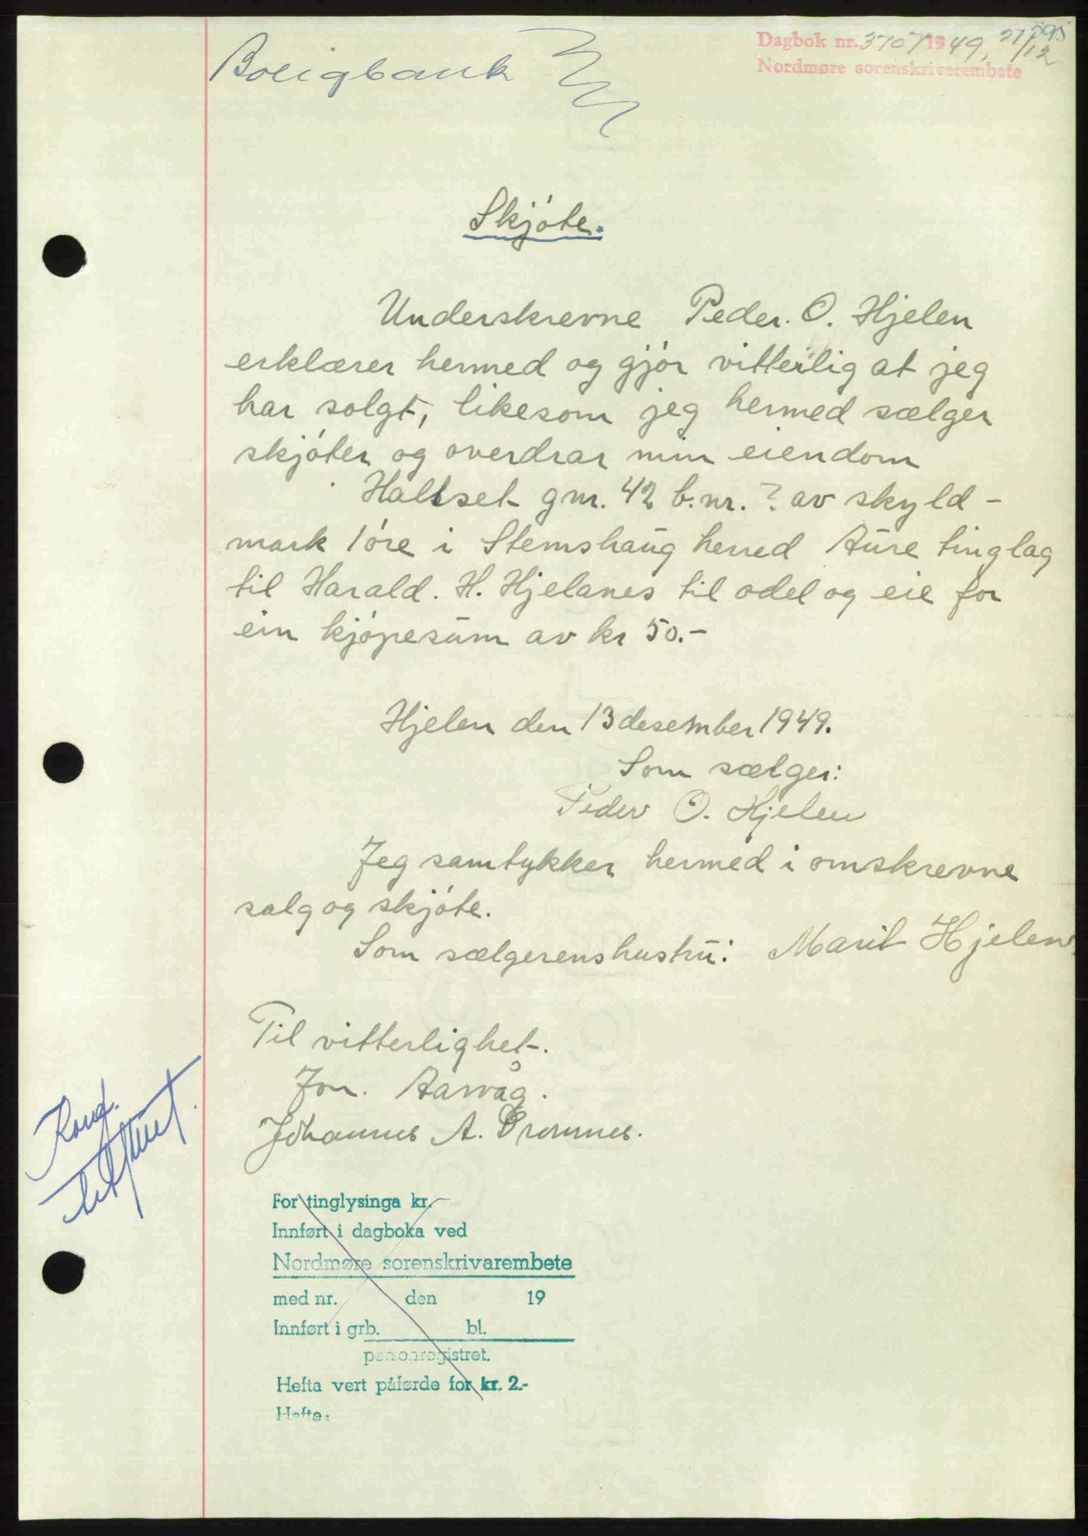 595
Dagbok nr. 3707 1949, 27/12
Nordmøre sorenskriverembete
Boligbank
Skjøte.
Underskrevne Peder. O. Hjelen
erklærer hermed og gjør vitterlig at jeg
har solgt, likesom jeg hermed sælger
skjøter og overdrar min eiendom
Hallset gnr. 42 b.nr. ? av skyld-
mark 1 øre i Stemshaug herred Aure tinglag
til Harald. H. Hjelanes til odel og eie for
ein kjøpesum av kr 50.-
Hjelen den 13 desember 1949.
Som sælger:
Peder O. Hjelen
Jeg samtykker hermed i omskrevne
salg og skjøte.
Som sælgerens hustru: Marit Hjelen
Til vitterlighet.
Jon. Aarvåg.
Johannes A. Gromnes.
Konf.
For tinglysinga kr. -
Innført i dagboka ved
Nordmøre sorenskrivarembete
med nr. den 19
Innført i grb. bl.
personregistret.
Hefta vert påførde for kr. 2.-
Hefte: